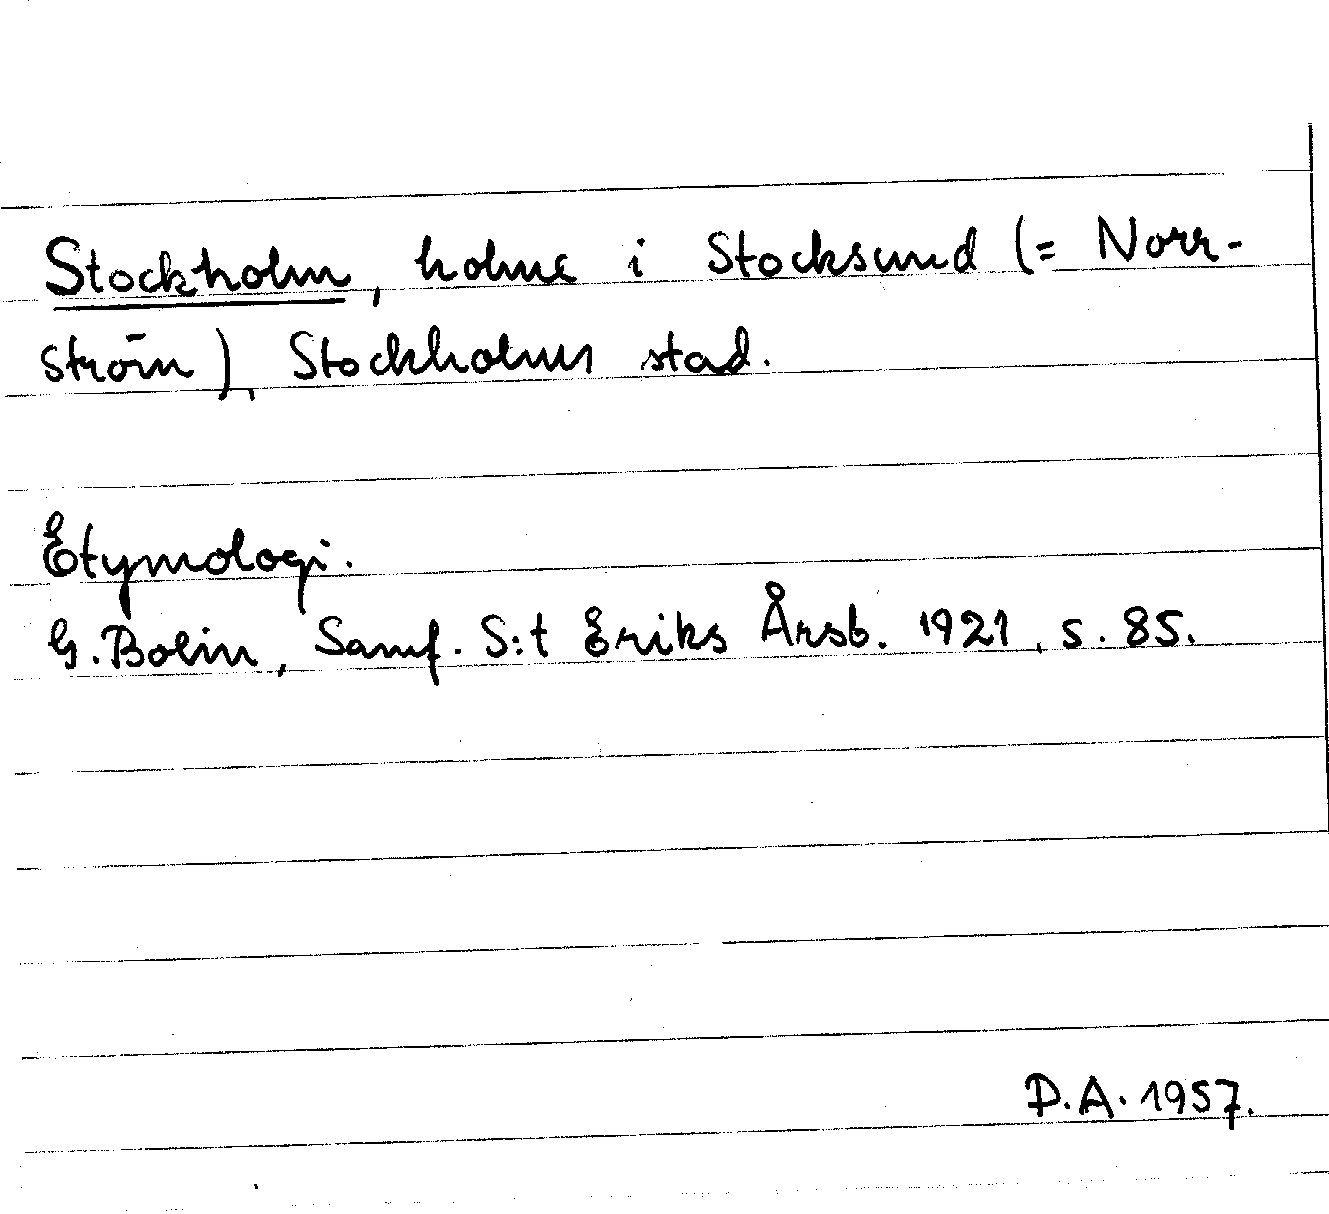 Stockholm, holme i Stocksund (= Norr-
ström), Stockholms stad.
Etymologi.
G. Bolin, Samf. S:t Eriks Årsb. 1921, s. 85.
D.A. 1957.